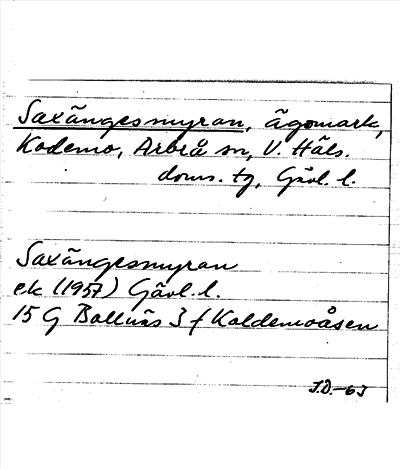 Saxängesmyran, ägomark,
Kodemo, Arbrå sn, V. Häls.
doms. tg, Gävl. l.
Saxängesmyran
ek (1957) Gävl. l.
15 G Bollnäs 3 f Koldemoåsen
J.D. -63